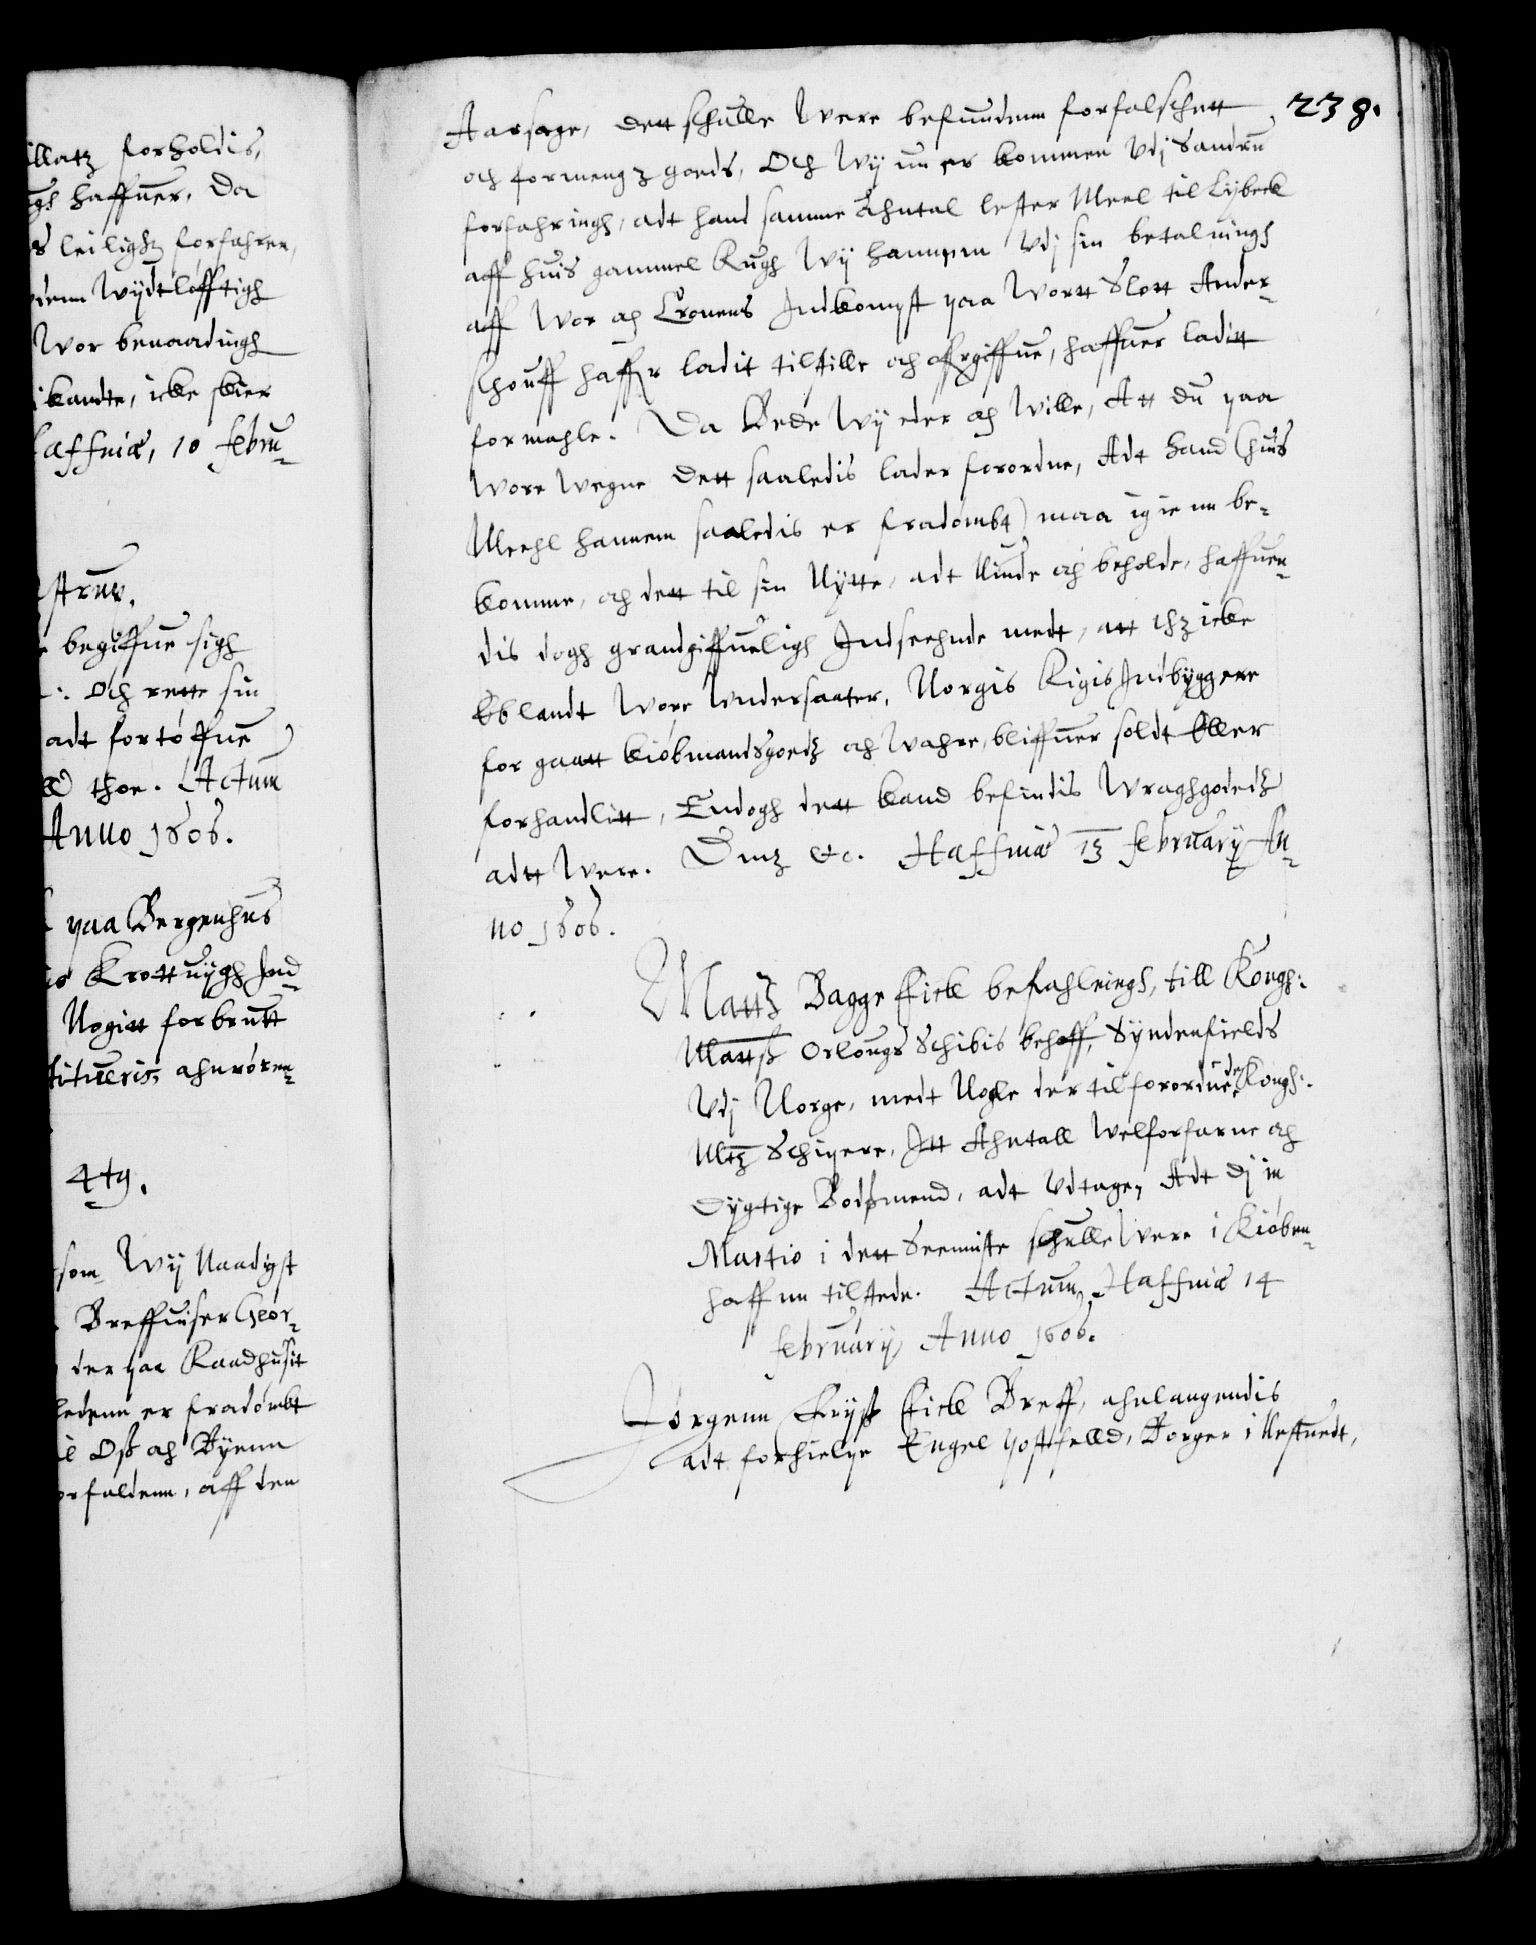 llatz forholdis,
gh haffuer, Da
s leiligh forfahren,
denn Wydtløfftigh
Wor benaadingh
kandte, icke skier
Haffniæ, 10 febru-
strup.
begiffue sigh
Och rette sin
adt fortøffue
thoe. Actum
Anno 1606.
paa Bergenhus
Nogitt forbrutt
titueris, ahnrøren-
4tg.
som Wij Naadigst
Breffuiser Geor-
der paa Raadhusit
ledenn er fradømbt
Oss och Byenn
orfaldenn, aff den
238.
Aarsage, dett schulle Were befundenn forfalschett
och formengz goeds, Och Wij nu er kommen Udj Sandru
forfahringh, adt hand samme Ahntal lester Meel til Lybeck
aff huis gammel Rugh Wij hannem Udj sin betalningh
aff Wor och Cronens Indkompst paa Wortt Slott Ander-
schouff haffr ladit tilstille och ofrgiffue, haffuer laditt
formahle. Da Bede Wij eder och Wille, Att du paa
Wore Wegne dett saaledis lader forordne, Adt hand (huis
Meehl hannem saaledis er fradømbt) maa igienn be-
komme, och dett til sin Nytte, adt Niude och beholde, haffuen-
dis dogh grandgiffueligh Indseehnde medt, att thz icke
Iblandt Wore Undersaater, Norgis Rigis Indbyggere
for gaatt kiøbmandsgoedz och Wahre, bliffuer soldt Eller
forhandlitt, Endogh dett kand befindis Wraghgodedz
adtt Were. Dmz etc. Haffniæ 13 february An-
no 1606.
Mattz Bagge fick befahleingh, till Kongh:
Mattss Orlougs Schibis behoff, Syndenfields
Udj Norge, medt Nogle der tilforordnede Kongh:
Mtz Schipere, Itt Ahntall Welforfarne och
Dygtige Bodsmend, adt Udtage, Adt dj in
Martio i dett Seeniste schulle Were i Kiøben-
haffnn tilstede. Actum Haffniæ 14
february Anno 1606.
Jørgenn Fryss fick Breff, ahnlangendis
adt forhielpe Engel Postfelld, Borger i Nestuedt,